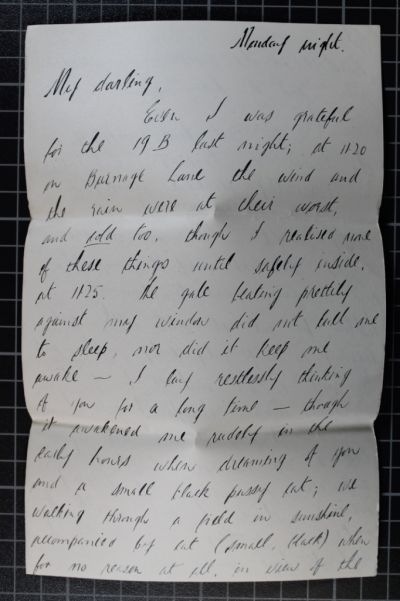 Monday night.
My darling,
Even I was grateful
for the 19 B last night; at 11.20
on Burnage Lane the wind and
the rain were at their worst,
and cold too, though I realised none
of these things until safely inside,
at 11.25. The gale beating prettily
against my window did not lull me
to sleep, nor did it keep me
awake — I lay restlessly thinking
of you for a long time — though
it awakened me rudely in the
early hours when dreaming of you
and a small black pussy cat; we
walking through a field in sunshine,
accompanied by cat (small, black) when
for no reason at all, in view of the